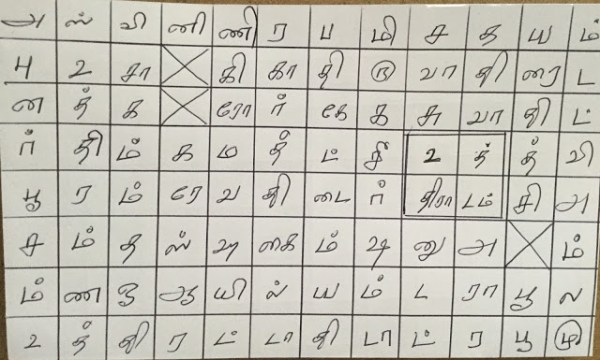 அ ஸ் வி னி ணி ர ப மி ச த ய ம்
பு உ சா கி கா தி ரு வா தி ரை ட
ன த் க ரோ ர் கே க சு வா தி ட்
ர் தி ம் க ம த் ட் சீ உ த் த் வி
பூ ர ம் ரே வ தி டை ர் திரா டம் சி அ
ச ம் த ஸ் கை ம் னு அ ம்
ம் ண ஆ யி ல் ய ம் ட ரா பூ ல
உ த் தி ர ட் டா தி டா ட் ர பூ மூ